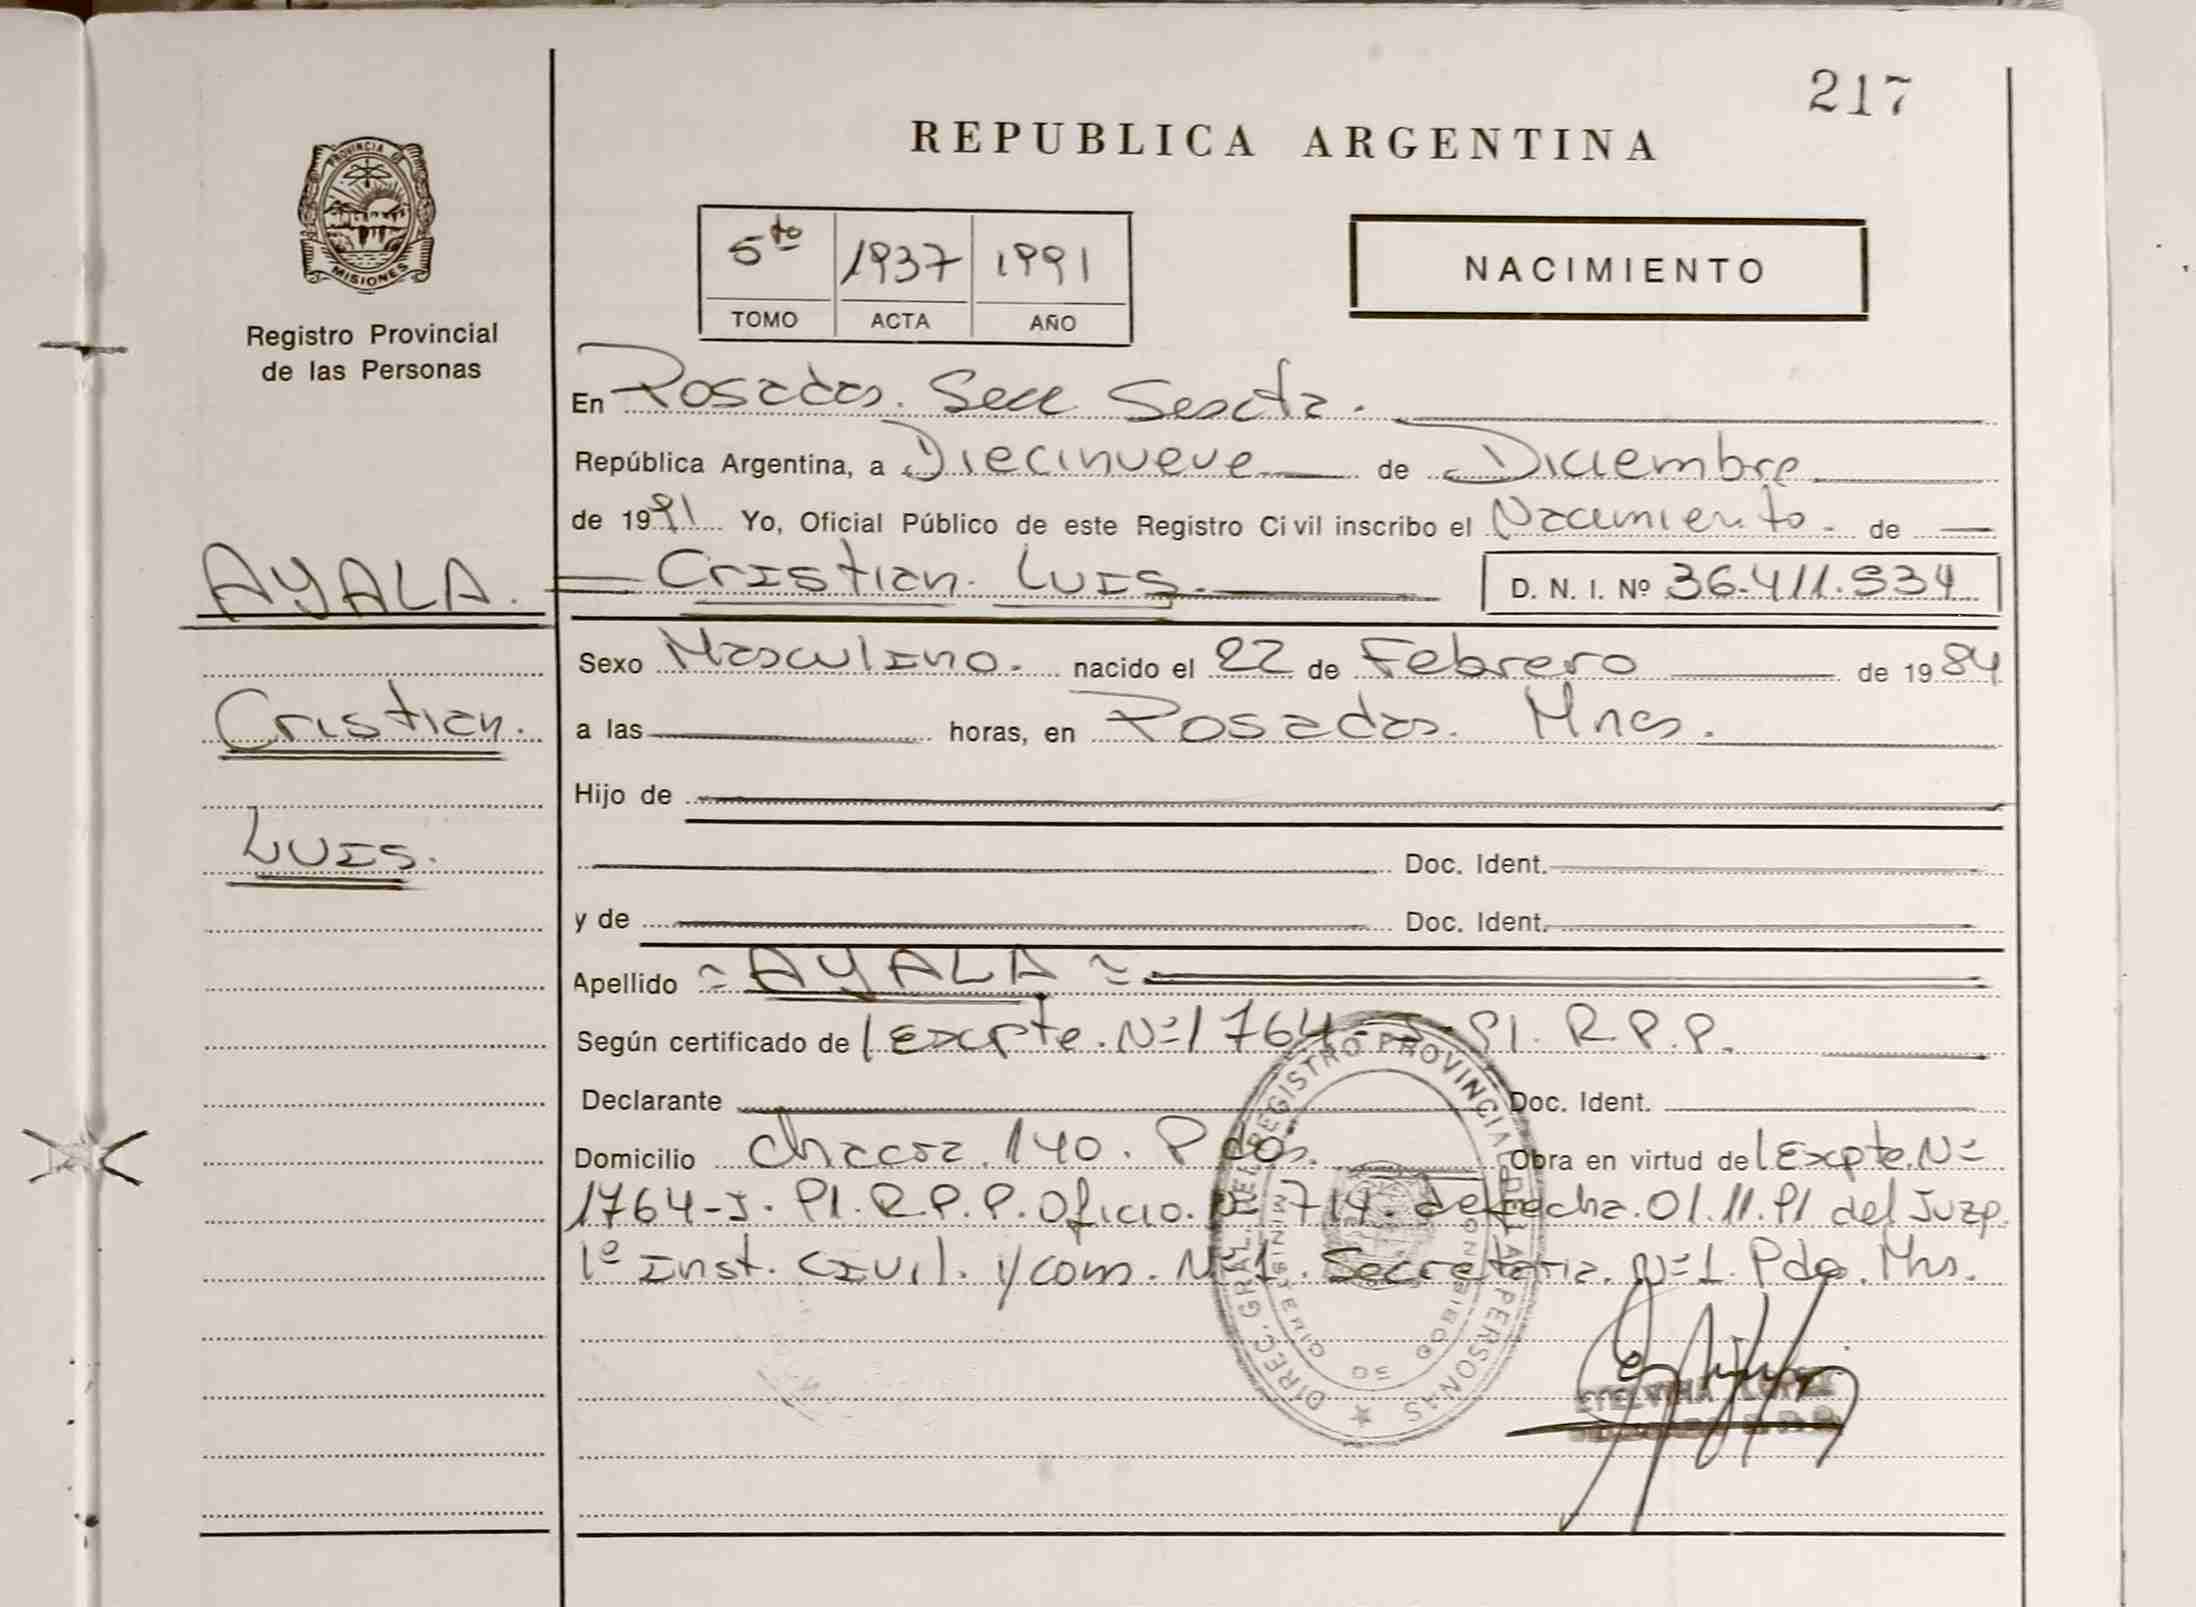 217
REPUBLICA ARGENTINA
PROVINCIA DE
MISIONES
Registro Provincial
de las Personas
5to 1937 1991
TOMO ACTA AÑO
NACIMIENTO
En Posadas. Secc Sexta.
República Argentina, a Diecinueve de Diciembre
de 1991 Yo, Oficial Público de este Registro Civil inscribo el Nacimiento. de
AYALA.
Cristian. Luis. D. N. I. Nº 36.411.934
Sexo Masculino. nacido el 22 de Febrero de 1984
Cristian.
a las horas, en Posadas. Mnes.
Hijo de
Luis.
Doc. Ident.
y de Doc. Ident.
Apellido = AYALA =
Según certificado de / Expte. Nº 1764-J- Pl. R.P.P.
Declarante Doc. Ident.
Domicilio Chacra 140. Pdas. Obra en virtud de / Expte. Nº
1764-J. Pl. R.P.P. Oficio. Nº 714. de fecha. 01.11.91 del Juzg.
1º Inst. Civil. y Com. Nº 1. Secretaria. Nº 1. Pdas. Mns.
DIREC. GRAL. DEL REGISTRO PROVINCIAL DE LAS PERSONAS
MINISTERIO DE GOBIERNO
ETELVINA LOPEZ